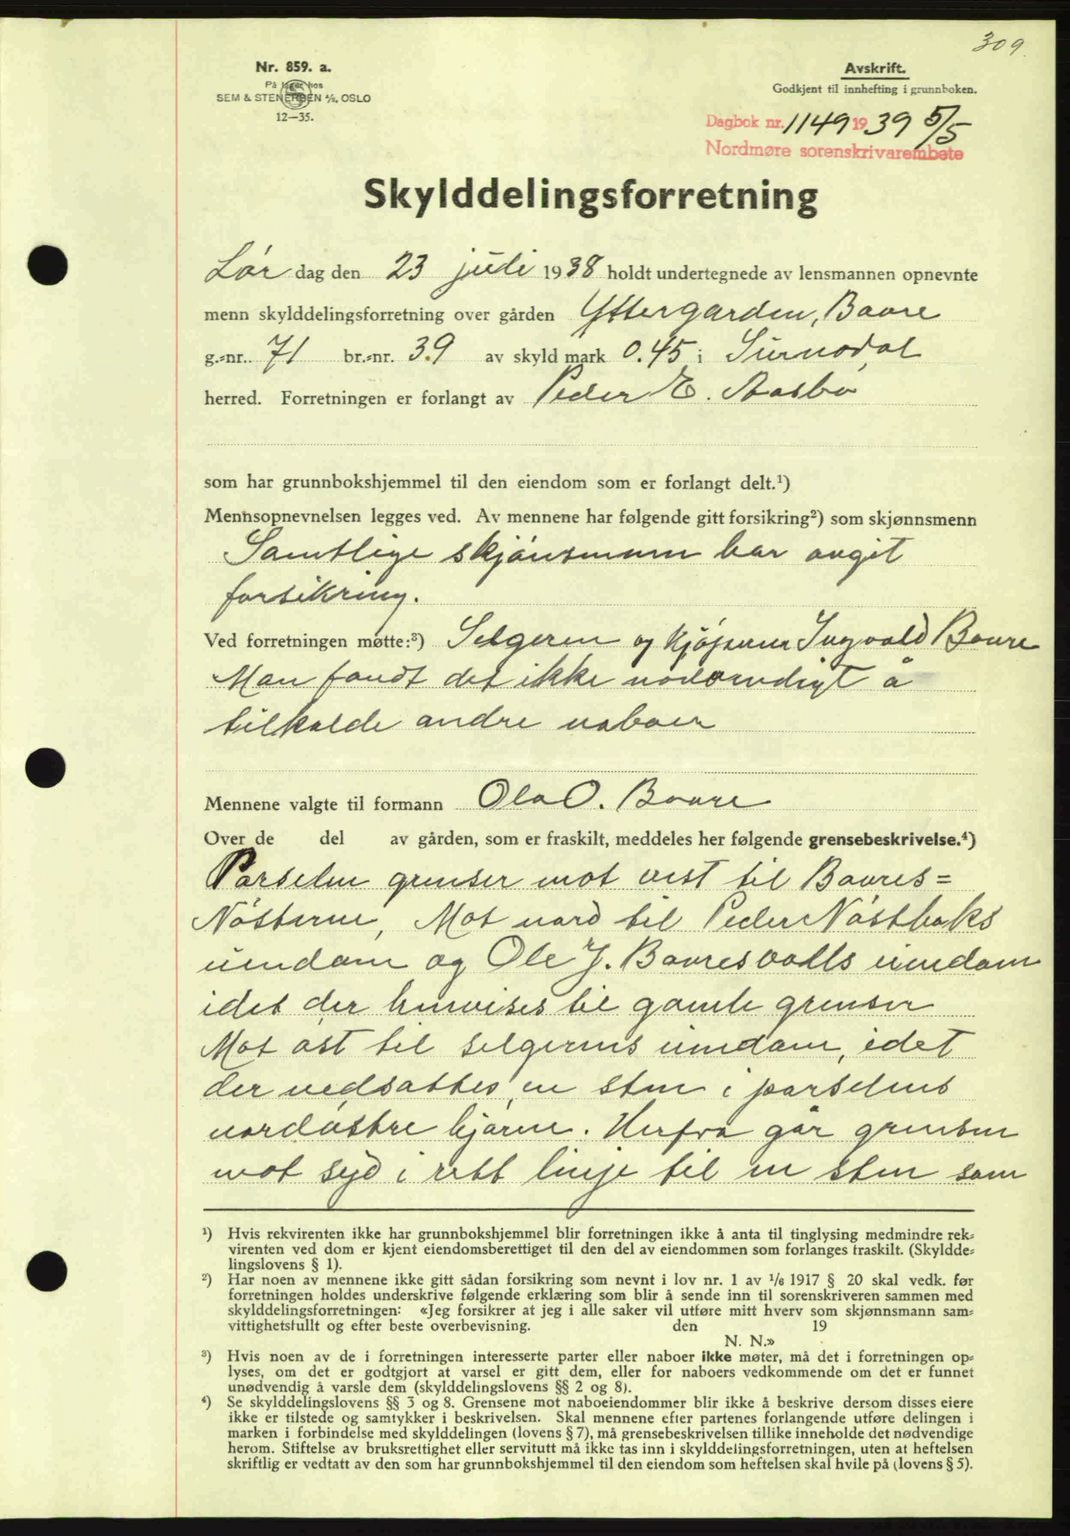 309.
Nr. 859. a.
På lager hos
SEM & STENERSEN A/S, OSLO
12—35.
Avskrift.
Godkjent til innhefting i grunnboken.
Dagbok nr. 1149 1939 5/5
Nordmøre sorenskrivarembete
Skylddelingsforretning
Lør dag den 23 juli 1938 holdt undertegnede av lensmannen opnevnte
menn skylddelingsforretning over gården Yttergarden, Bøvre
g.-nr. 71 br.-nr. 39 av skyld mark 0.45 i Surnadal
herred. Forretningen er forlangt av Peder E. Aasbø
som har grunnbokshjemmel til den eiendom som er forlangt delt.¹)
Mennsopnevnelsen legges ved. Av mennene har følgende gitt forsikring²) som skjønnsmenn
Samtlige skjønsmenn har avgit
forsikring.
Ved forretningen møtte:³) Selgeren og kjøperen Ingvald Bøvre
Man fandt det ikke nødvendigt å
tilkalde andre naboer
Mennene valgte til formann Ola O. Bøvre
Over de del av gården, som er fraskilt, meddeles her følgende grensebeskrivelse.⁴)
Parselen grenser mot vest til Bøvres=
Nøsterne, Mot nord til Peder Nøstbaks
eiendom og Ole J. Bøvresvolls eiendom
idet der henvises til gamle grenser
Mot øst til selgerens eiendom, idet
der nedsattes en sten i parselens
nordøstre hjørne. Herfra går grensen
mot syd i rett linje til en sten som
¹) Hvis rekvirenten ikke har grunnbokshjemmel blir forretningen ikke å anta til tinglysing medmindre rek-
virenten ved dom er kjent eiendomsberettiget til den del av eiendommen som forlanges fraskilt. (Skyldde-
lingslovens § 1).
²) Har noen av mennene ikke gitt sådan forsikring som nevnt i lov nr. 1 av 1/6 1917 § 20 skal vedk. før
forretningen holdes underskrive følgende erklæring som blir å sende inn til sorenskriveren sammen med
skylddelingsforretningen: «Jeg forsikrer at jeg i alle saker vil utføre mitt hverv som skjønnsmann sam-
vittighetsfullt og efter beste overbevisning. den 19
N. N.»
³) Hvis noen av de i forretningen interesserte parter eller naboer ikke møter, må det i forretningen op-
lyses, om det er godtgjort at varsel er gitt dem, eller for naboers vedkommende om det er funnet
unødvendig å varsle dem (skylddelingslovens §§ 2 og 8).
⁴) Se skylddelingslovens §§ 3 og 8. Grensene mot naboeiendommer blir ikke å beskrive dersom disses eiere
ikke er tilstede og samtykker i beskrivelsen. Skal mennene efter partenes forlangende utføre delingen i
marken i forbindelse med skylddelingen (lovens § 7), må grensebeskrivelsen tillike inneholde det nødvendige
herom. Stiftelse av bruksrettighet eller servitutt må ikke tas inn i skylddelingsforretningen, uten at heftelsen
skriftlig er vedtatt av den som har grunnbokshjemmel til den eiendom som heftelsen skal hvile på (lovens § 5).